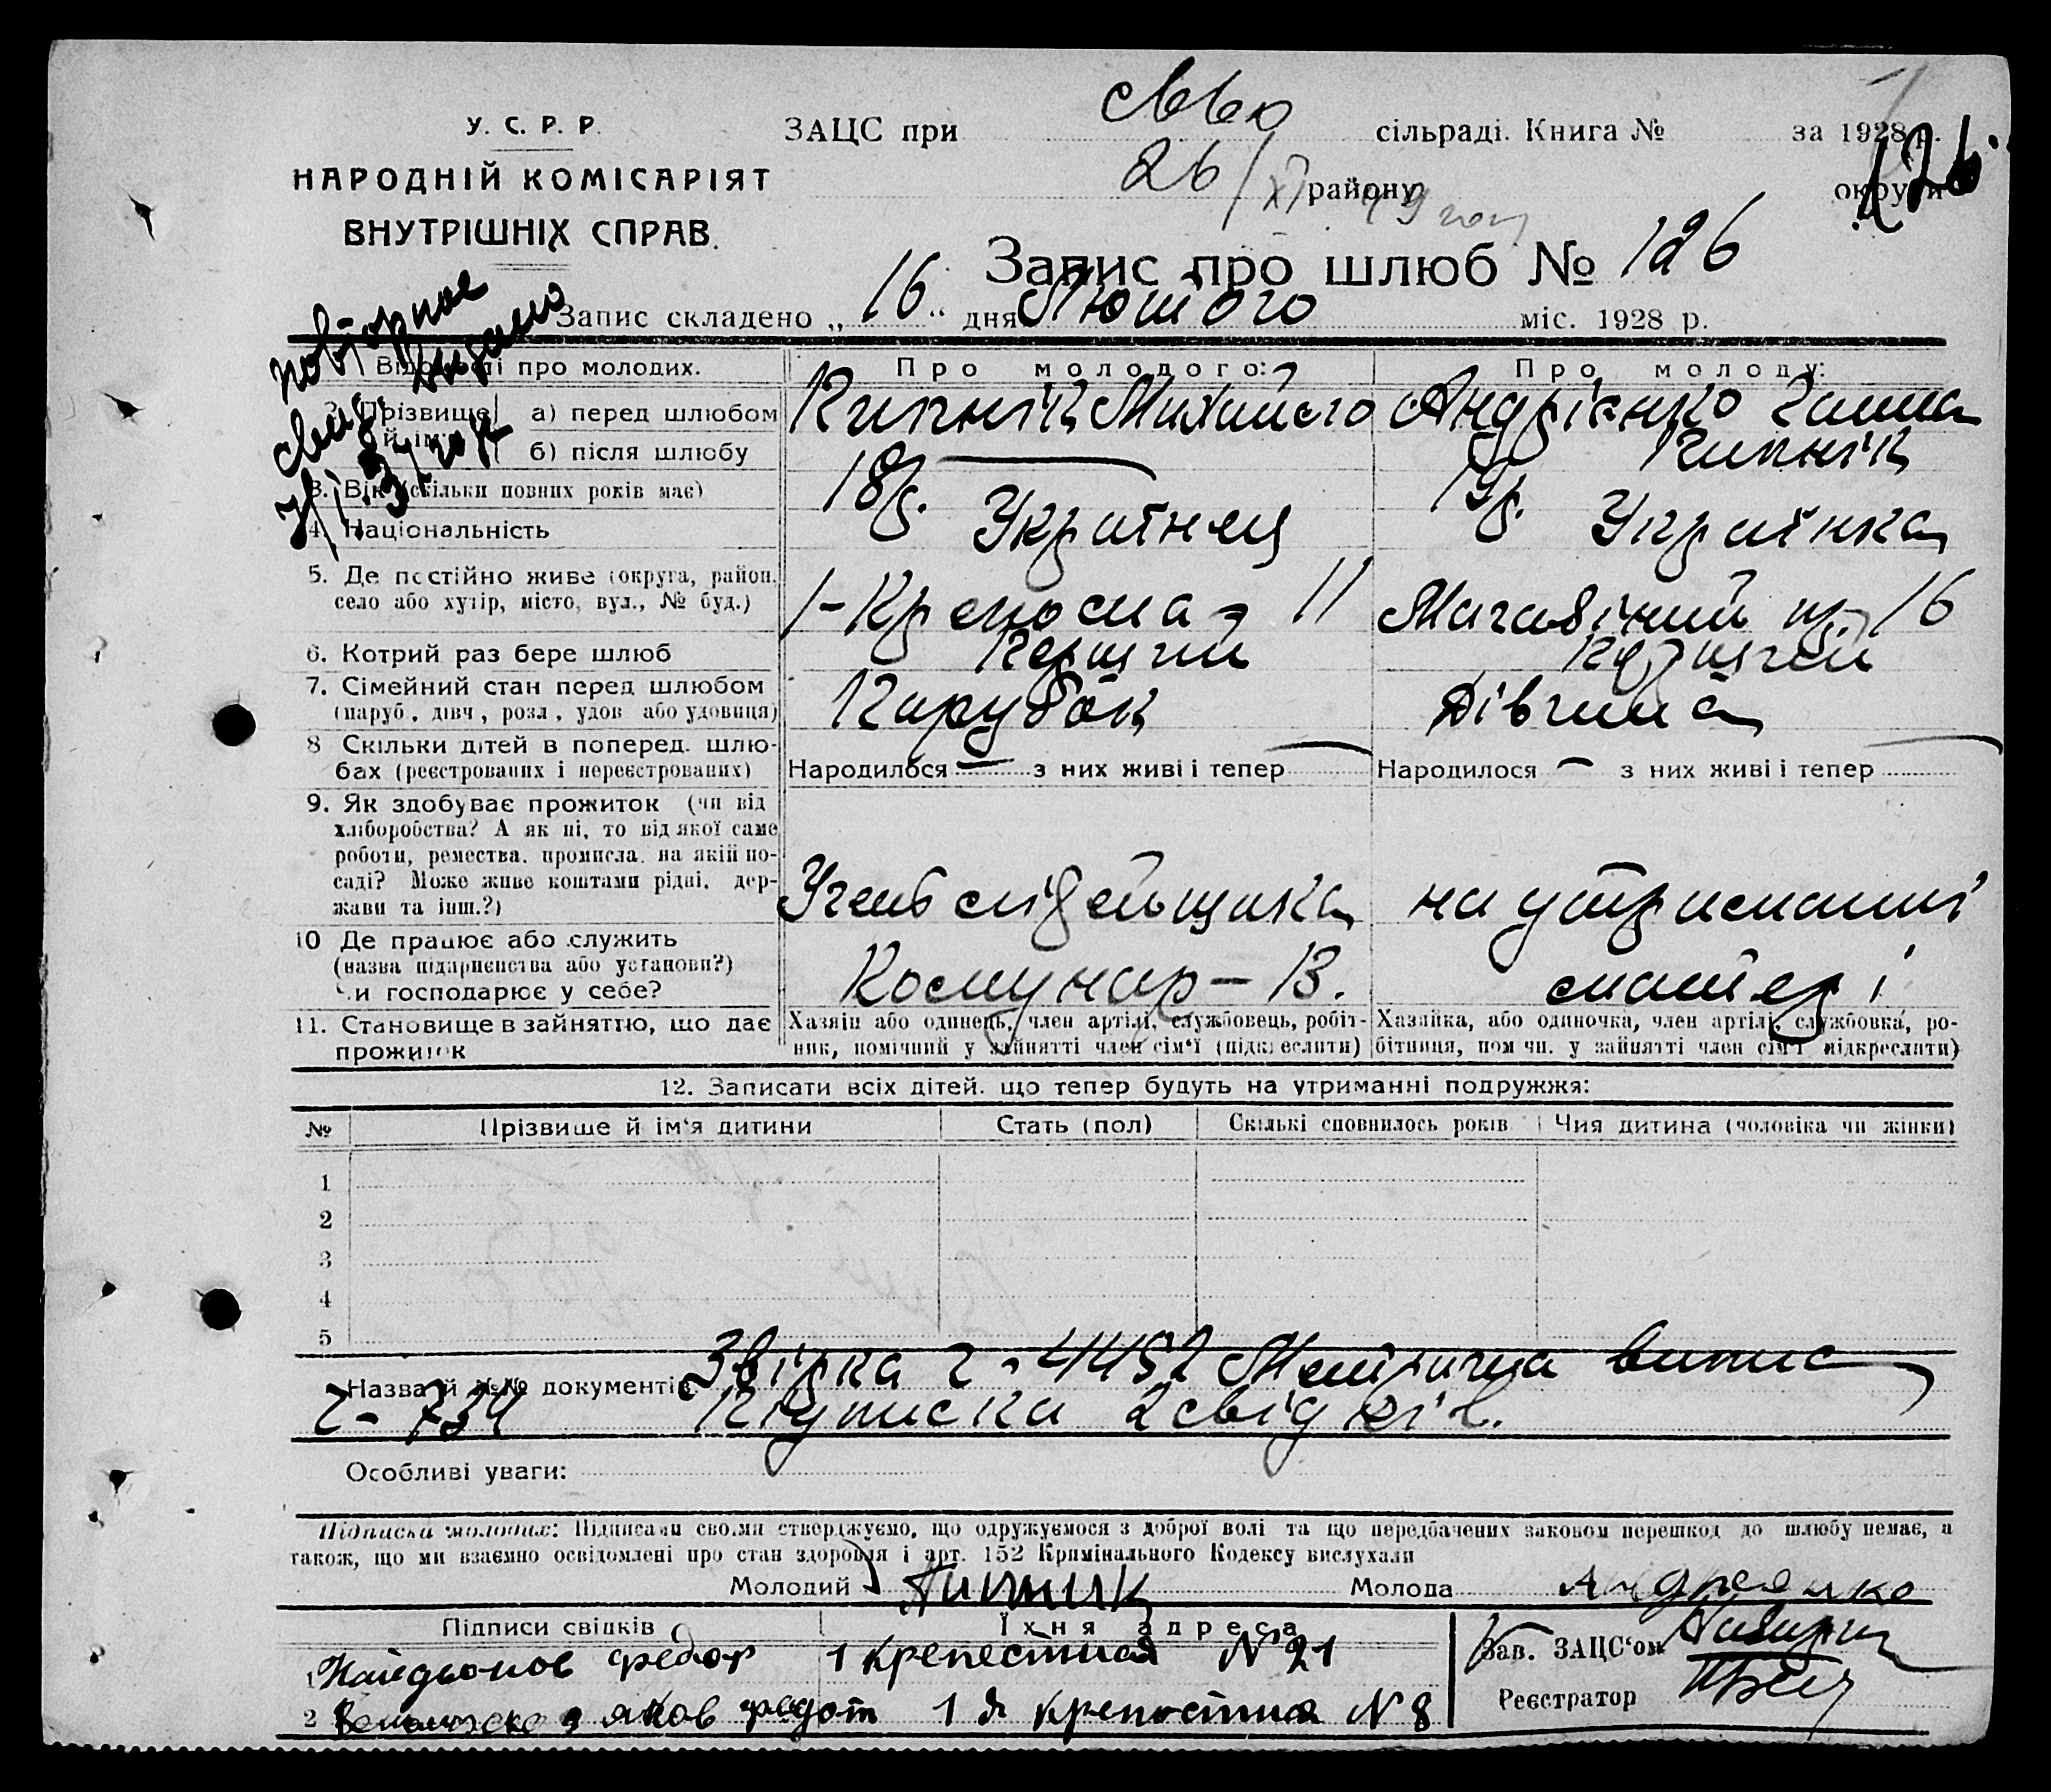 У. С. Р. Р.
НАРОДНІЙ КОМІСАРІЯТ
ВНУТРІШНІХ СПРАВ.
ЗАЦС при сільраді. Книга № за 1928 р.
26/XI району округи
126.
Запис про шлюб № 126
Запис складено „ 16 “ дня Лютого міс. 1928 р.
повторное
свид. выдано
Відомості про молодих. Про молодого: Про молоду:
2. Прізвище й ім'я а) перед шлюбом Михайло Андрієнко Ганна
б) після шлюбу
3. Вік (скільки повних років має) 18 р. 19 р.
4. Національність Українец Українка
5. Де постійно живе (округа, район, село або хутір, місто, вул., № буд.) 1-Крепосна - 11 16
6. Котрий раз бере шлюб Перший Перший
7. Сімейний стан перед шлюбом
(паруб., дівч., розл., удов або удовиця) Парубок Дівчина
8 Скільки дітей в поперед. шлюбах (реєстрованих і нереєстрованих) Народилося — з них живі і тепер — Народилося — з них живі і тепер —
9. Як здобуває прожиток (чи від
хліборобства? А як ні, то від якої саме
роботи, ремества, промисла, на якій посаді? Може живе коштами рідні, держави та інш.?) Учень на утриманні
10 Де працює або служить
(назва підприємства або установи?)
Чи господарює у себе? Комунар - В. матері
11. Становище в зайняттю, що дає
прожиток
Хазяїн або одинець, член артілі, службовець, робітник, помічний у зайнятті член сім'ї (підкреслити)
Хазяйка, або одиночка, член артілі, службовка, робітниця, помічн. у зайнятті член сім'ї (підкреслити)
12. Записати всіх дітей, що тепер будуть на утриманні подружжя:
№ Прізвише й ім'я дитини Стать (пол) Скількі сповнилось років Чия дитина (чоловіка чи жінки)
1
2
3
4
5
Назва й №№ документів Звірка ч - 4452 Метрична випис
ч - 734 Підписка 2 свідків.
Особливі уваги:
Підписка молодих: Підписами своїми стверджуємо, що одружуємося з доброї волі та що передбачених законом перешкод до шлюбу немає, а
також, що ми взаємно освідомлені про стан здоровля і арт. 152 Кримінального Кодексу вислухали
Молодий Молода Андреянко
Підписи свідків Їхня адреса
1 Найдьонов Федор 1 крепестная N 21
2 Яков 1 я крепостная N 8
Зав. ЗАЦС'ом
Реєстратор